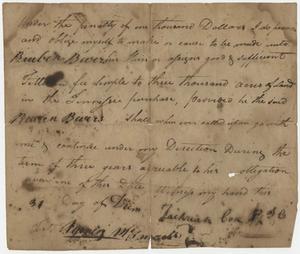 Under the Penalty of one thousand Dollars I do
and oblige myself to make or cause to be made unto
Reuben Bowers him or assigns good & sufficient
Title in fee simple to three thousand acres of Land
in the Tennessee purchase, provided he the said
Reuben Bowers Shall when ever called upon go with
me & continue under my Direction During the
term of three years agreeable to his obligation
of this Date Witness my hand this
31 Day of
Zachariah Cox